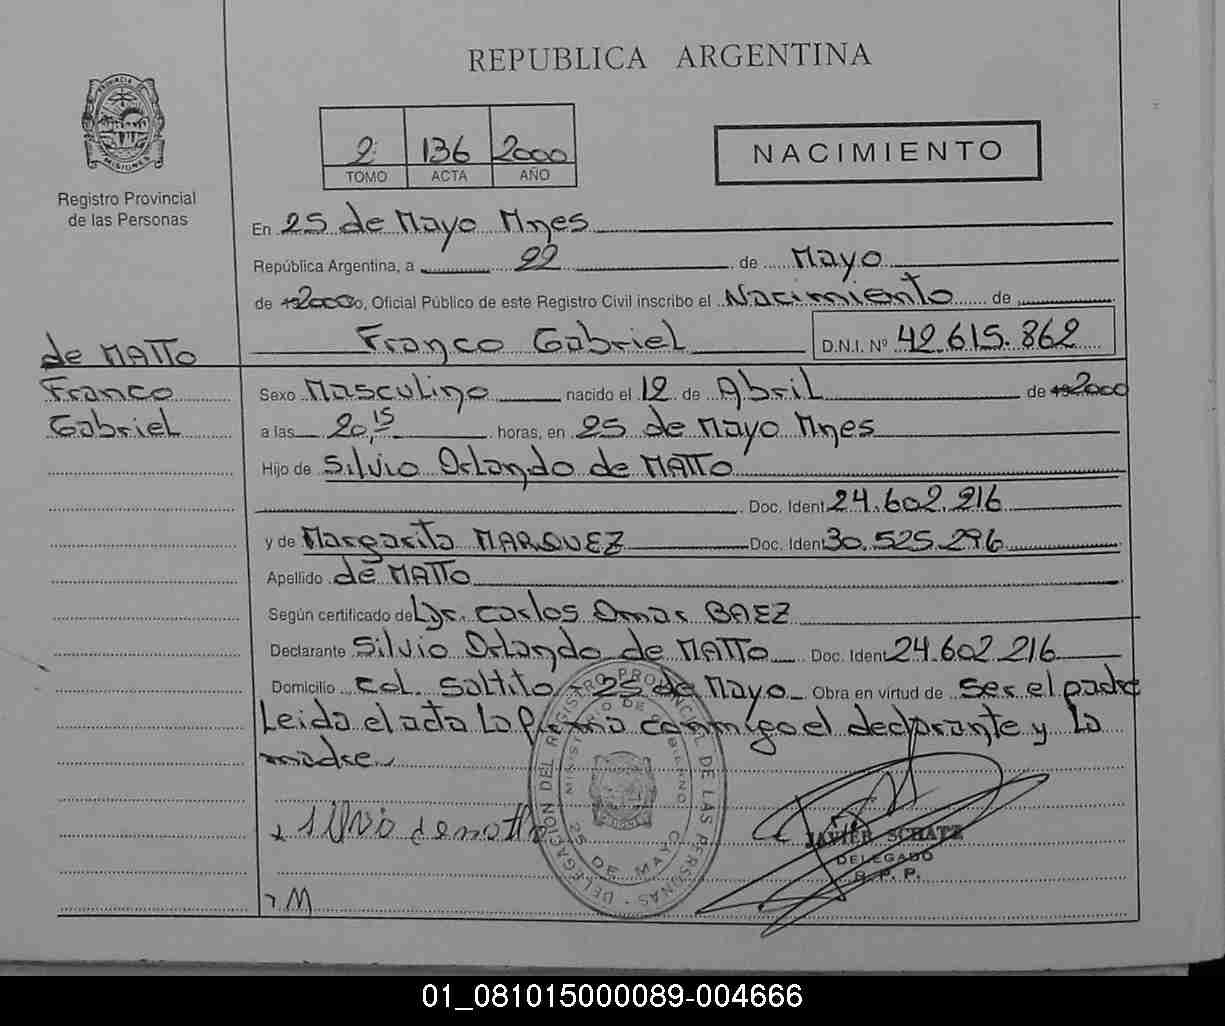 REPUBLICA ARGENTINA
PROVINCIA DE MISIONES
Registro Provincial
de las Personas
2 136 2000
TOMO ACTA AÑO
NACIMIENTO
En 25 de Mayo Mnes
República Argentina, a 22 de Mayo
de 2000, Oficial Público de este Registro Civil inscribo el Nacimiento de
Franco Gabriel D.N.I. Nº 42.615.862
de MATTO
Franco
Gabriel
Sexo Masculino nacido el 12 de Abril de 2000
a las 20,15 horas, en 25 de Mayo Mnes
Hijo de Silvio Orlando de MATTO
Doc. Ident 24.602.216
y de Margarita MARQUEZ Doc. Ident 30.525.296
Apellido de MATTO
Según certificado de Dr. Carlos Omar BAEZ
Declarante Silvio Orlando de MATTO Doc. Ident 24.602.216
Domicilio Col. Saltito - 25 de Mayo Obra en virtud de ser el padre
Leida el acta la firma conmigo el declarante y la
madre
Silvio de motto
DELEGACION DEL REGISTRO PROVINCIAL DE LAS PERSONAS
MINISTERIO DE GOBIERNO
25 DE MAYO
JAVIER SCHATZ
DELEGADO
R. P. P.
M
01_081015000089-004666